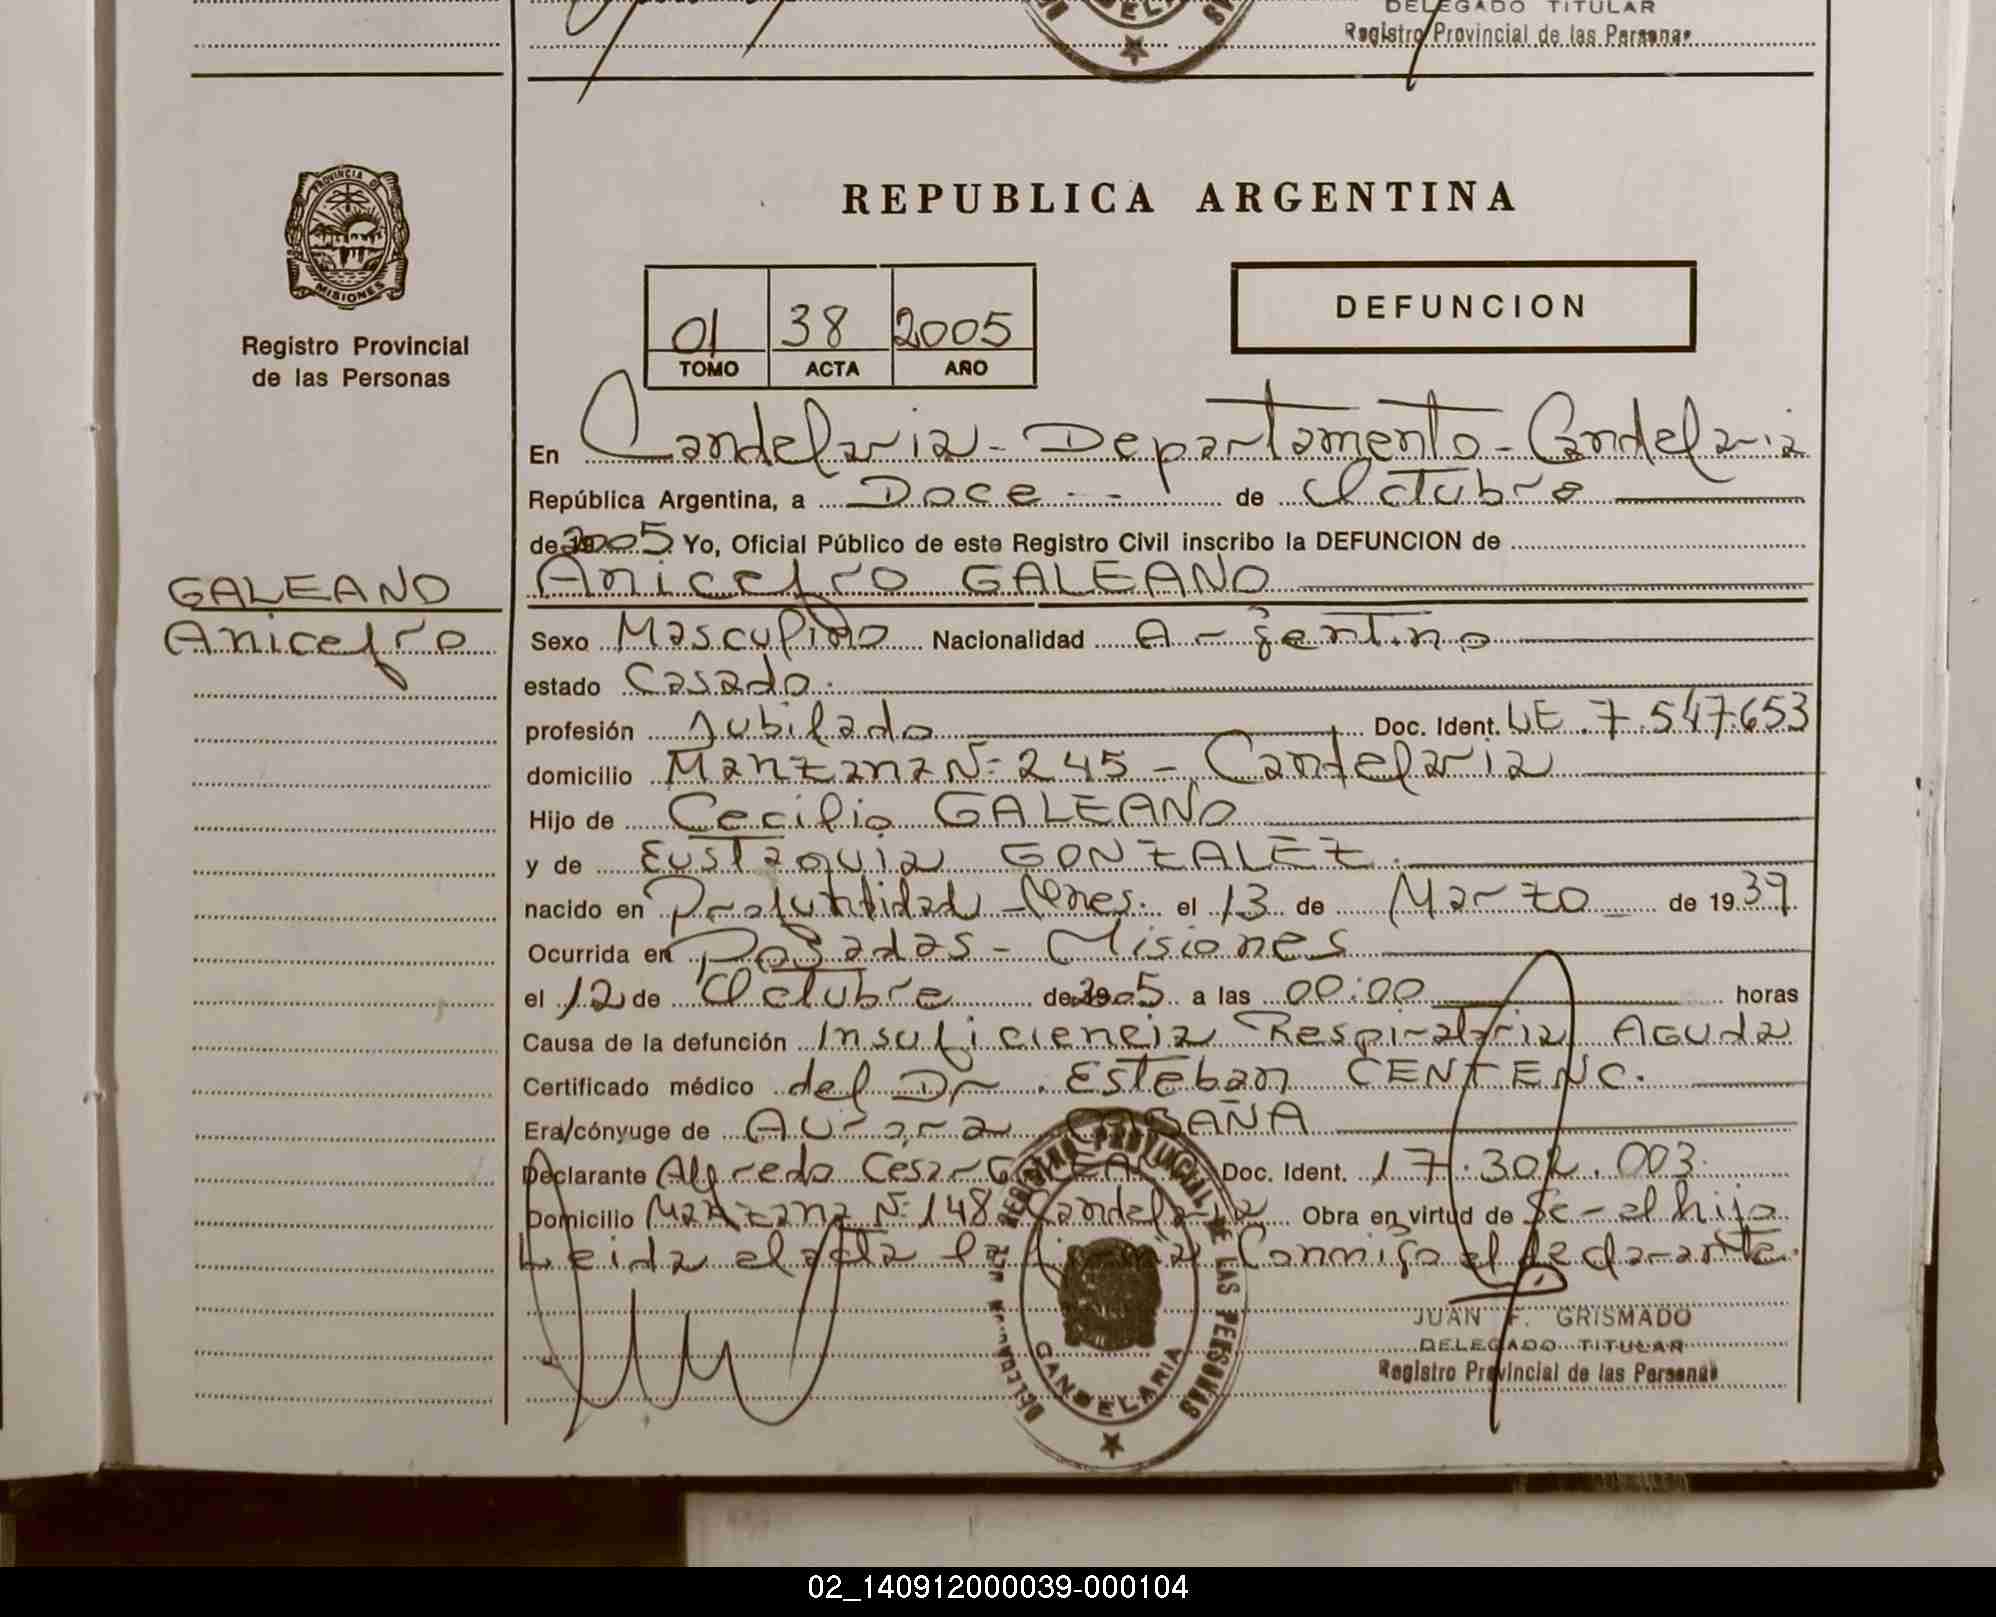 DELEGADO TITULAR
Registro Provincial de las Personas
PROVINCIA DE
MISIONES
Registro Provincial
de las Personas
REPUBLICA ARGENTINA
01 38 2005
TOMO ACTA AÑO
DEFUNCION
En Candelaria - Departamento - Candelaria
República Argentina, a Doce -- de Octubre
de 2005 Yo, Oficial Público de este Registro Civil inscribo la DEFUNCION de
Anicefro GALEANO
GALEANO
Anicefro
Sexo Masculino Nacionalidad Argentino
estado Casado.
profesión Jubilado Doc. Ident. LE. 7.547.653
domicilio Manzana Nº 245 - Candelaria
Hijo de Cecilio GALEANO
y de Eustaquia GONZALEZ.
nacido en Profundidad - Mnes. el 13 de Marzo de 1939
Ocurrida en Posadas - Misiones
el 12 de Octubre de 2005 a las 00:00 horas
Causa de la defunción Insuficiencia Respiratoria AGuda
Certificado médico del Dr. Esteban CENTENO.
Era/cónyuge de Aurora CABAÑA
Declarante Alfredo Cesar GALEANO Doc. Ident. 17.302.003.
Domicilio Manzana Nº 148 Candelaria Obra en virtud de Ser el hijo
Leida el acta la firma Conmigo el declarante.
REGISTRO PROVINCIAL DE LAS PERSONAS
CANDELARIA
JUAN F. GRISMADO
DELEGADO TITULAR
Registro Provincial de las Personas
02_140912000039-000104